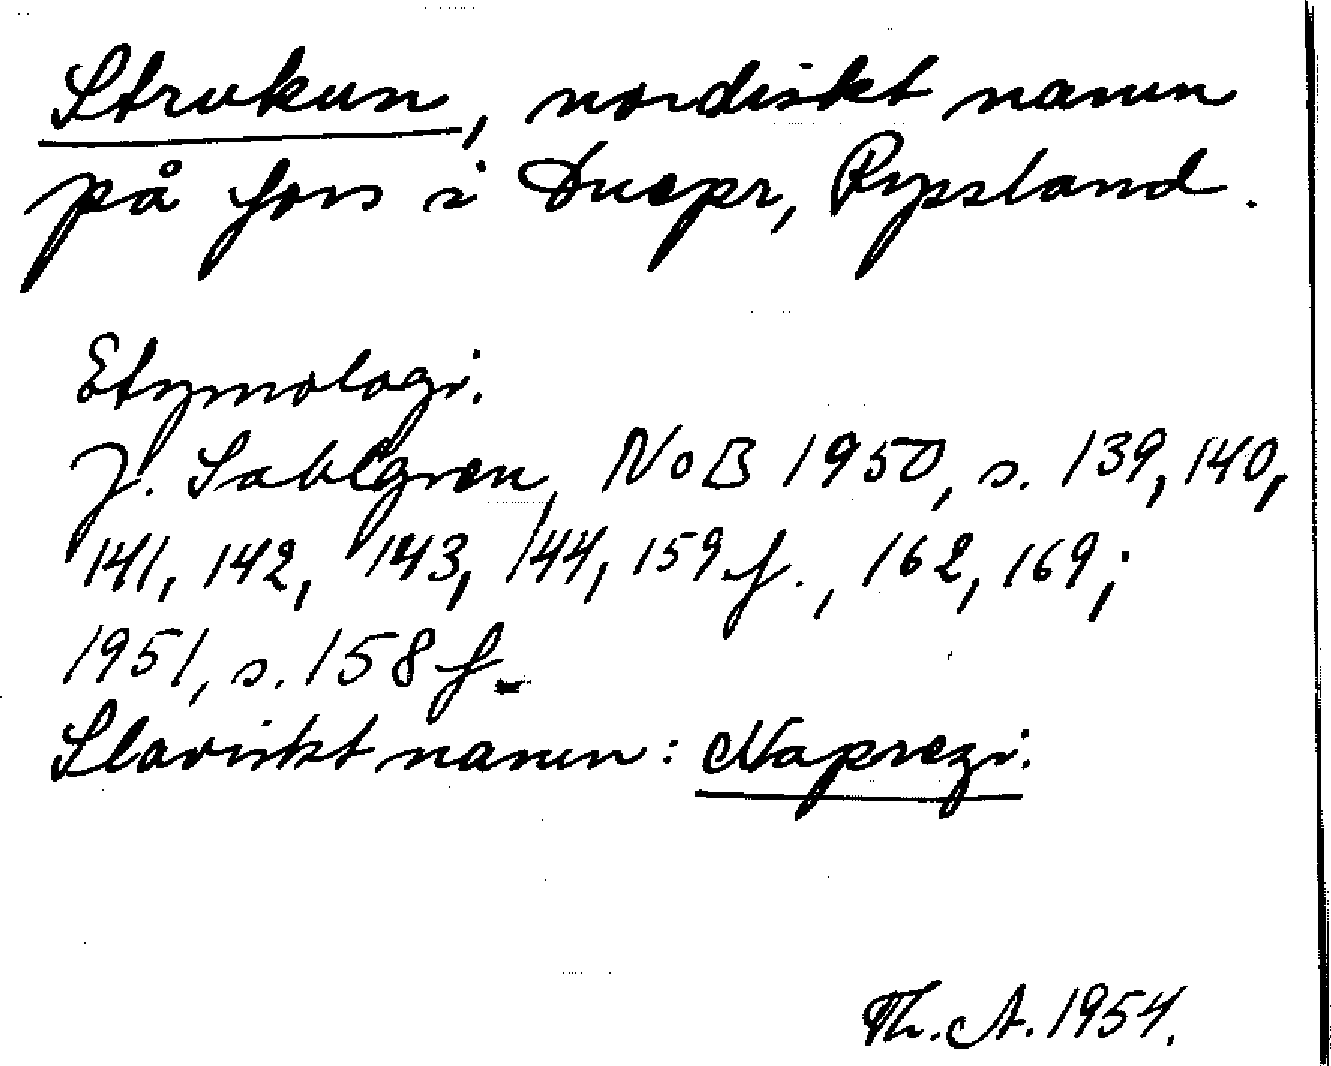 Strukun, nordiskt namn
på fors i Dnepr, Ryssland.
Etymologi.
J. Sahlgren, NoB 1950, s. 139, 140,
141, 142, 143, 144, 159 f., 162, 169;
1951, s. 158 f.
Slaviskt namn: Naprezi.
Th. A. 1954.